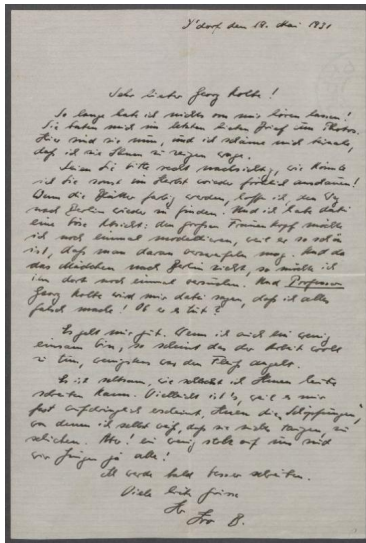 D'dorf den 18. Mai 1931
Sehr lieber Georg Kolbe!
So lange habe ich nichts von mir hören lassen!
Sie baten mich im letzten lieben Brief um Photos.
Hier sind sie nun, und ich schäme mich beinahe,
daß ich sie Ihnen zu zeigen wage.
Seien Sie bitte recht nachsichtig, wie könnte
ich Sie sonst im Herbst wieder fröhlich anschauen!
Wenn die Blätter farbig werden, hoffe ich, den Weg
nach Berlin wieder zu finden. Und ich habe dabei
eine böse Absicht: den großen Frauenkopf möchte
ich noch einmal modellieren, weil er so schön
ist, daß man daran verzweifeln mag. Und da
das Mädchen nach Berlin zieht, so möchte ich
ihn dort noch einmal versuchen. Und Professor
Georg Kolbe wird mir dabei sagen, daß ich alles
falsch mache! Ob er es tut?
Es geht mir gut. Wenn ich auch ein wenig
einsam bin, so scheint das der Arbeit wohl
zu tun, wenigstens was den Fleiß angeht.
Es ist seltsam, wie schlecht ich Ihnen heute
schreiben kann. Vielleicht ist's, weil es mir
fast aufdringlich erscheint, Ihnen die "Schöpfungen",
von denen ich selbst weiß, daß sie nichts taugen, zu
schicken. Aber! ein wenig stolz auf uns sind
wir Jungen ja alle!
Ich werde bald besser schreiben.
Viele liebe Grüsse
Ihr